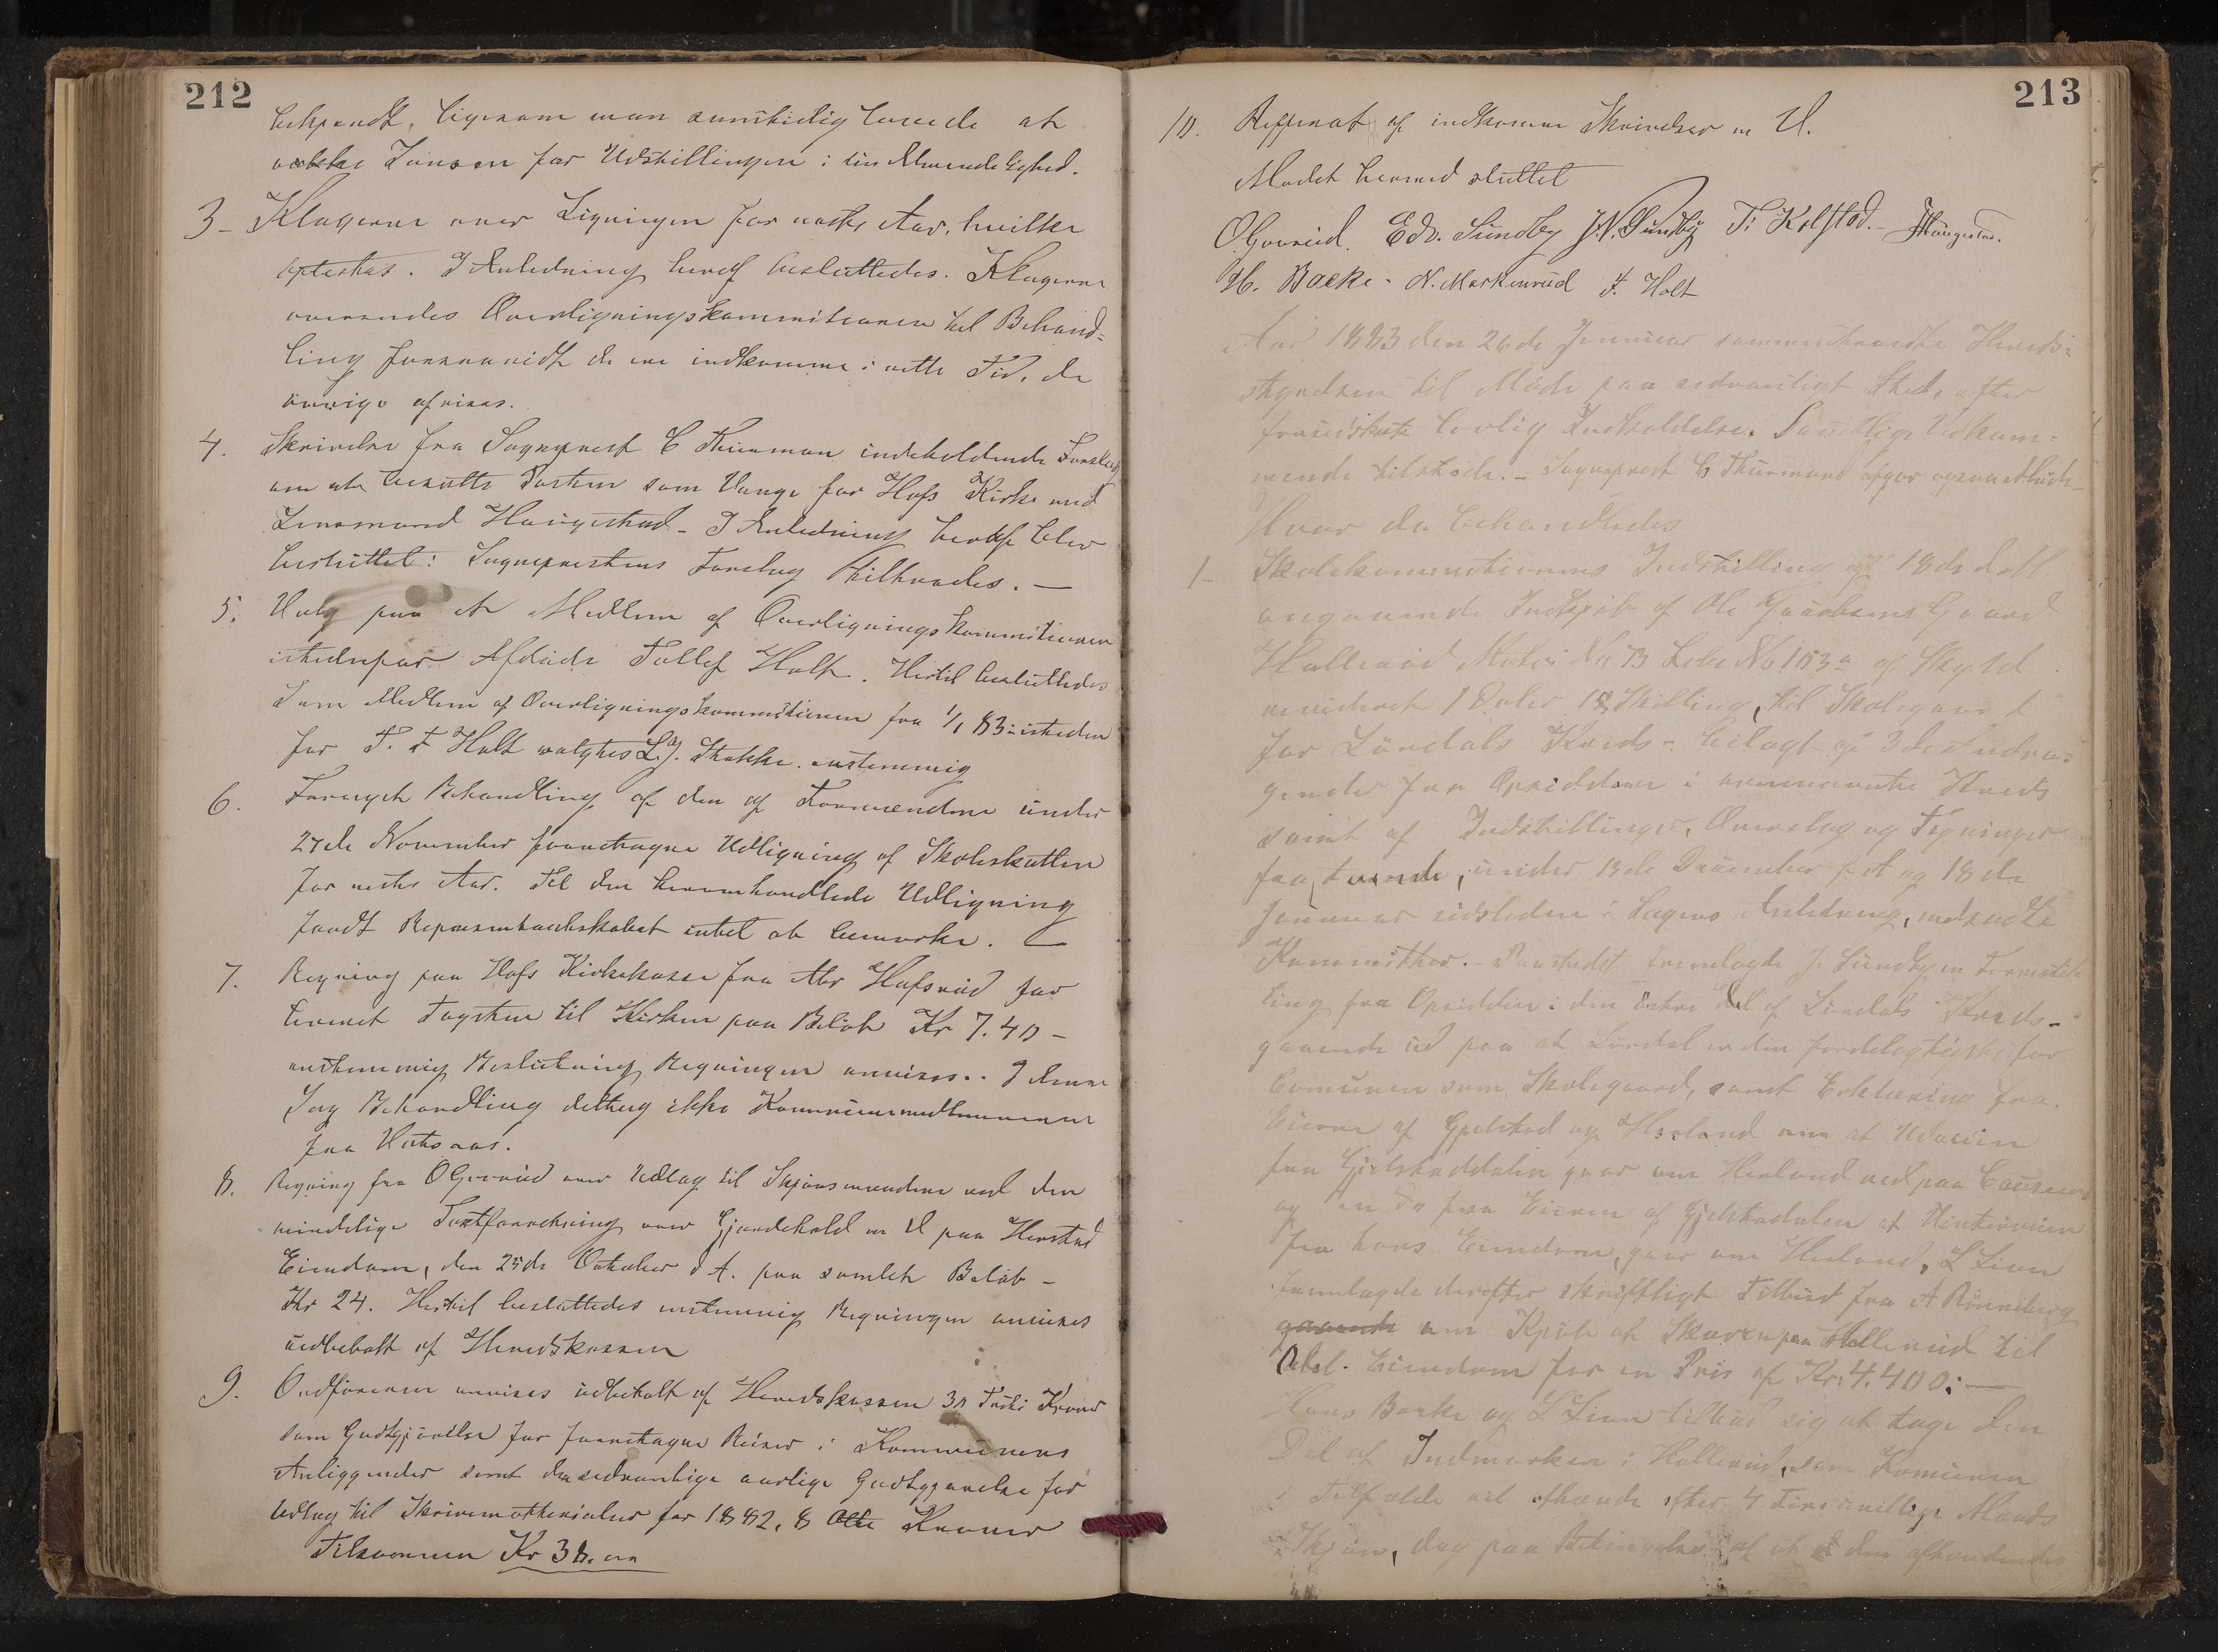 212
bekjendt, ligesom man samtidig lovede at
vække Sansen for Udstillingen i sin Almindelighed.
3- Klagerne over Ligningen for næste Aar, hvilke
oplæstes. I Anledning heraf besluttedes. Klagerne
oversendes Overligningskommitionen til Behand=
ling forsaavidt de ere indkomme i rette Tid, de
øvrige afvises.
4. Skrivelse fra Sogneprest C Thurman indeholdende Forslag
om at besætte Posten som Værge for Hofs Kirke med
Lensmand Haugestad - I Anledning heraf blev
besluttet: Sogneprestens Forslag tiltrædes. -
5. Valg paa et Medlem af Overligningskommitionen
istedenfor Afdøde Tollef Holt. Hertil besluttedes
Som Medlem af Overligningskommitionen fra 1/1 83 - isteden
for T. T Holt valgtes L. J. Stokke. enstemmig
6. Fornyet Behandling af den af Formændene under
27de November foretagne Udligning af Skoleskatten
for neste Aar. Til den heromhandlede Udligning
fandt Representantskabet intet at bemærke. -
7. Regning paa Hofs Kirkekasse fra Abr Hafsrud for
leveret Tagsten til Kirken paa Beløb Kr 7.40 -
enstemmig Beslutning Regningen anvises.. I denne
Sag Behandling deltog ikke Kommunemedlemmerne
fra Vataas.
8. Regning fra O Gourud over Udlag til Skjønsmændene ved den
mindelige Takstforretning over Gjærdehold m V paa Herstad
Eiendom, den 25de Oktober d A. paa samlet Beløb -
Kr 24. Hertil besluttedes enstemmig Regningen anvises
udbetalt af Heredskassen
9. Ordføreren anvises udbetalt af Heredskassen 30 Tredve Kroner
som Godtgjørelse for foretagne Reiser i Kommunens
Anliggender samt den sedvanlige aarlige Godtgjørelse for
Udlag til Skrivematterialier for 1882, 8 Otte Kroner
Tilsammen Kr 38.00
213
10. Refferat af indkomne Skrivelser m V.
Mødet hermed sluttet
O Gourud. Edv. Sundby J. N. Sundby T. Kolstad. - Haugestad.
H. Backe - N. Markenrud F. Holt
Aar 1883 den 26de Januar sammentraadte Hereds=
styrelsen til Møde paa sedvanligt Sted, efter
forudskeet lovlig Indkaldelse. Samtlige Vedkom=
mende tilstede. - Sogneprest C Thurmand afgav ogsaa Møde
Hvor da behandledes
1- Skolekommitionens Indstilling af 18de d M
angaaende Indkjøb af Ole Jacobsens Gaard
Hallerud Matr No 73 Løbe No 103a af Skyld
revideret 1 Daler 18 Skilling, til Skolegaard
for Løvdals Kreds - bilagt af 3de Andra=
gender fra Opsiddere i ovennævnte Kreds
samt af Indstillinger, Overslag og Tegninger
fra tvende, under 13de December f A og 18de
Januar sidstleden i Sagens Anledning, nedsatte
Kommitteer. - Paastedet fremlagde J. Sundby en Forestil
ling fra Opsiddere i den østre Del af Løvdals Kreds -
gaaende ud paa at Løvdal er den fordelagtigste for
Comunen som Skolegaard, samt Erklæring fra
Eieren af Gjelstad og Haaland om at Udveien
fra Gjelstaddalen gaar om Herland ned paa Causeen
og en Do fra Eieren af Gjelstadalen at Vinterveien
fra hans Eiendom, gaar om Herland, L Lien
fremlagde derefter skriftligt Tilbud fra A Rønneberg
gaaende om Kjøb af Skoven paa Hallerud til
Abel. Eiendom for en Pris af Kr. 4.400: -
Hans Backe og L Lien tilbød sig at tage den
Del af Indmarken i Hallerud, som Komunen
i Tilfælde vil afhænde efter 4 Fire uvillige Mænds
Skjøn, dog paa Betingelse af at den afhændendes